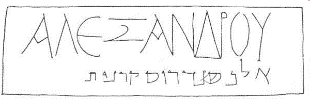 ΑΛΕΞΑΝΔΡΟΥ
אלכסנדרוס קרנית